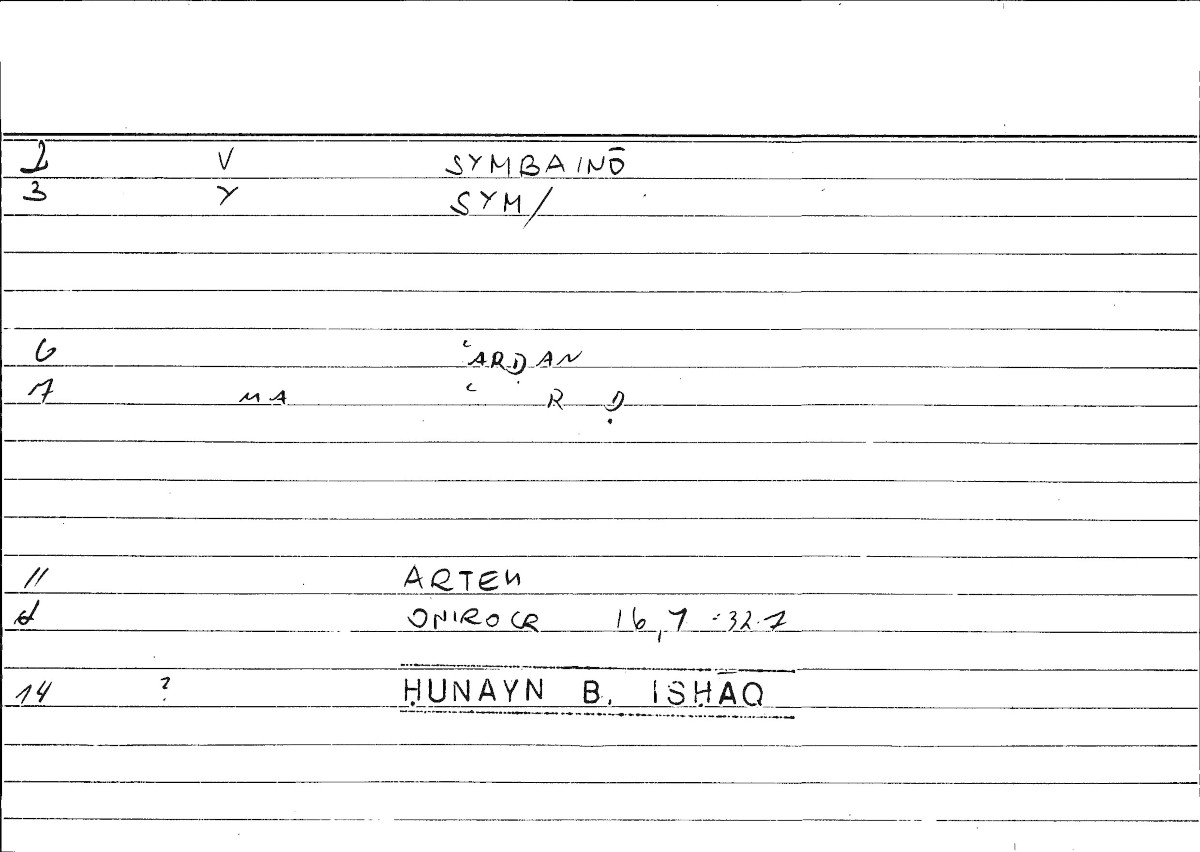 2 V SYMBAINŌ
3 Y SYM/
6 ʿARḌAN
7 MA ʿ R Ḍ
11 ARTEM
ONIROCR 16,7 :32.7
14 ? ḤUNAYN B. ISḤĀQ